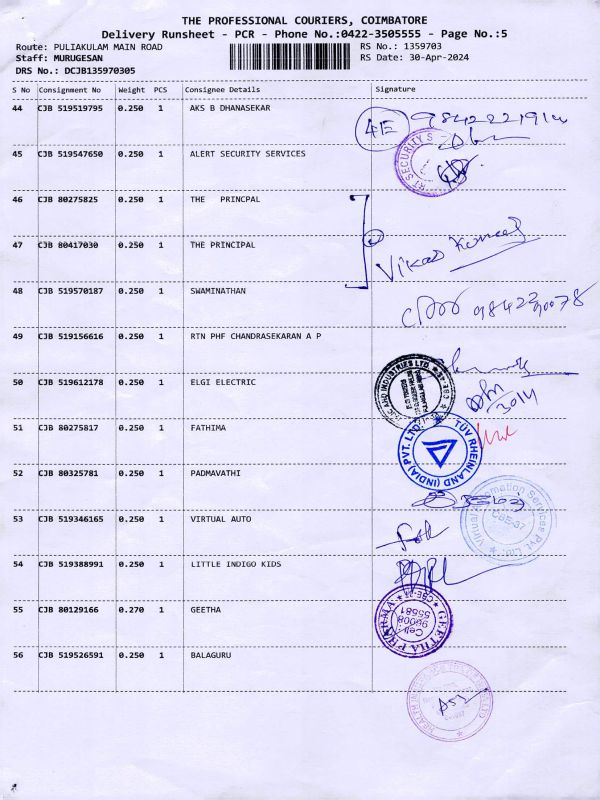 THE PROFESSIONAL COURIERS, COIMBATORE
Delivery Runsheet - PCR - Phone No.:0422-3505555 - Page No.:5
Route: PULIAKULAM MAIN ROAD RS No.: 1359703
Staff: MURUGESAN RS Date: 30-Apr-2024
DRS No.: DCJB135970305
S No Consignment No Weight PCS Consignee Details Signature
44 CJB 519519795 0.250 1 AKS B DHANASEKAR
4E 9842221914
45 CJB 519547650 0.250 1 ALERT SECURITY SERVICES
SECURITY S
46 CJB 80275825 0.250 1 THE PRINCPAL
47 CJB 80417030 0.250 1 THE PRINCIPAL
Vikas Kumar
48 CJB 519570187 0.250 1 SWAMINATHAN
49 CJB 519156616 0.250 1 RTN PHF CHANDRASEKARAN A P
50 CJB 519612178 0.250 1 ELGI ELECTRIC
AND INDUSTRIES LTD.
30/4
51 CJB 80275817 0.250 1 FATHIMA
TÜV RHEINLAND (INDIA) PVT. LTD.
52 CJB 80325781 0.250 1 PADMAVATHI
53 CJB 519346165 0.250 1 VIRTUAL AUTO
Virtual Automation Services Pvt. Ltd.
CBE-37
54 CJB 519388991 0.250 1 LITTLE INDIGO KIDS
55 CJB 80129166 0.270 1 GEETHA
GEETHA PHARMA
Cell:
56 CJB 519526591 0.250 1 BALAGURU